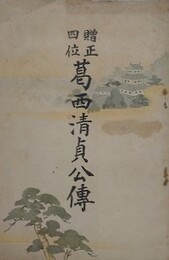 贈正四位
葛西清貞公傳